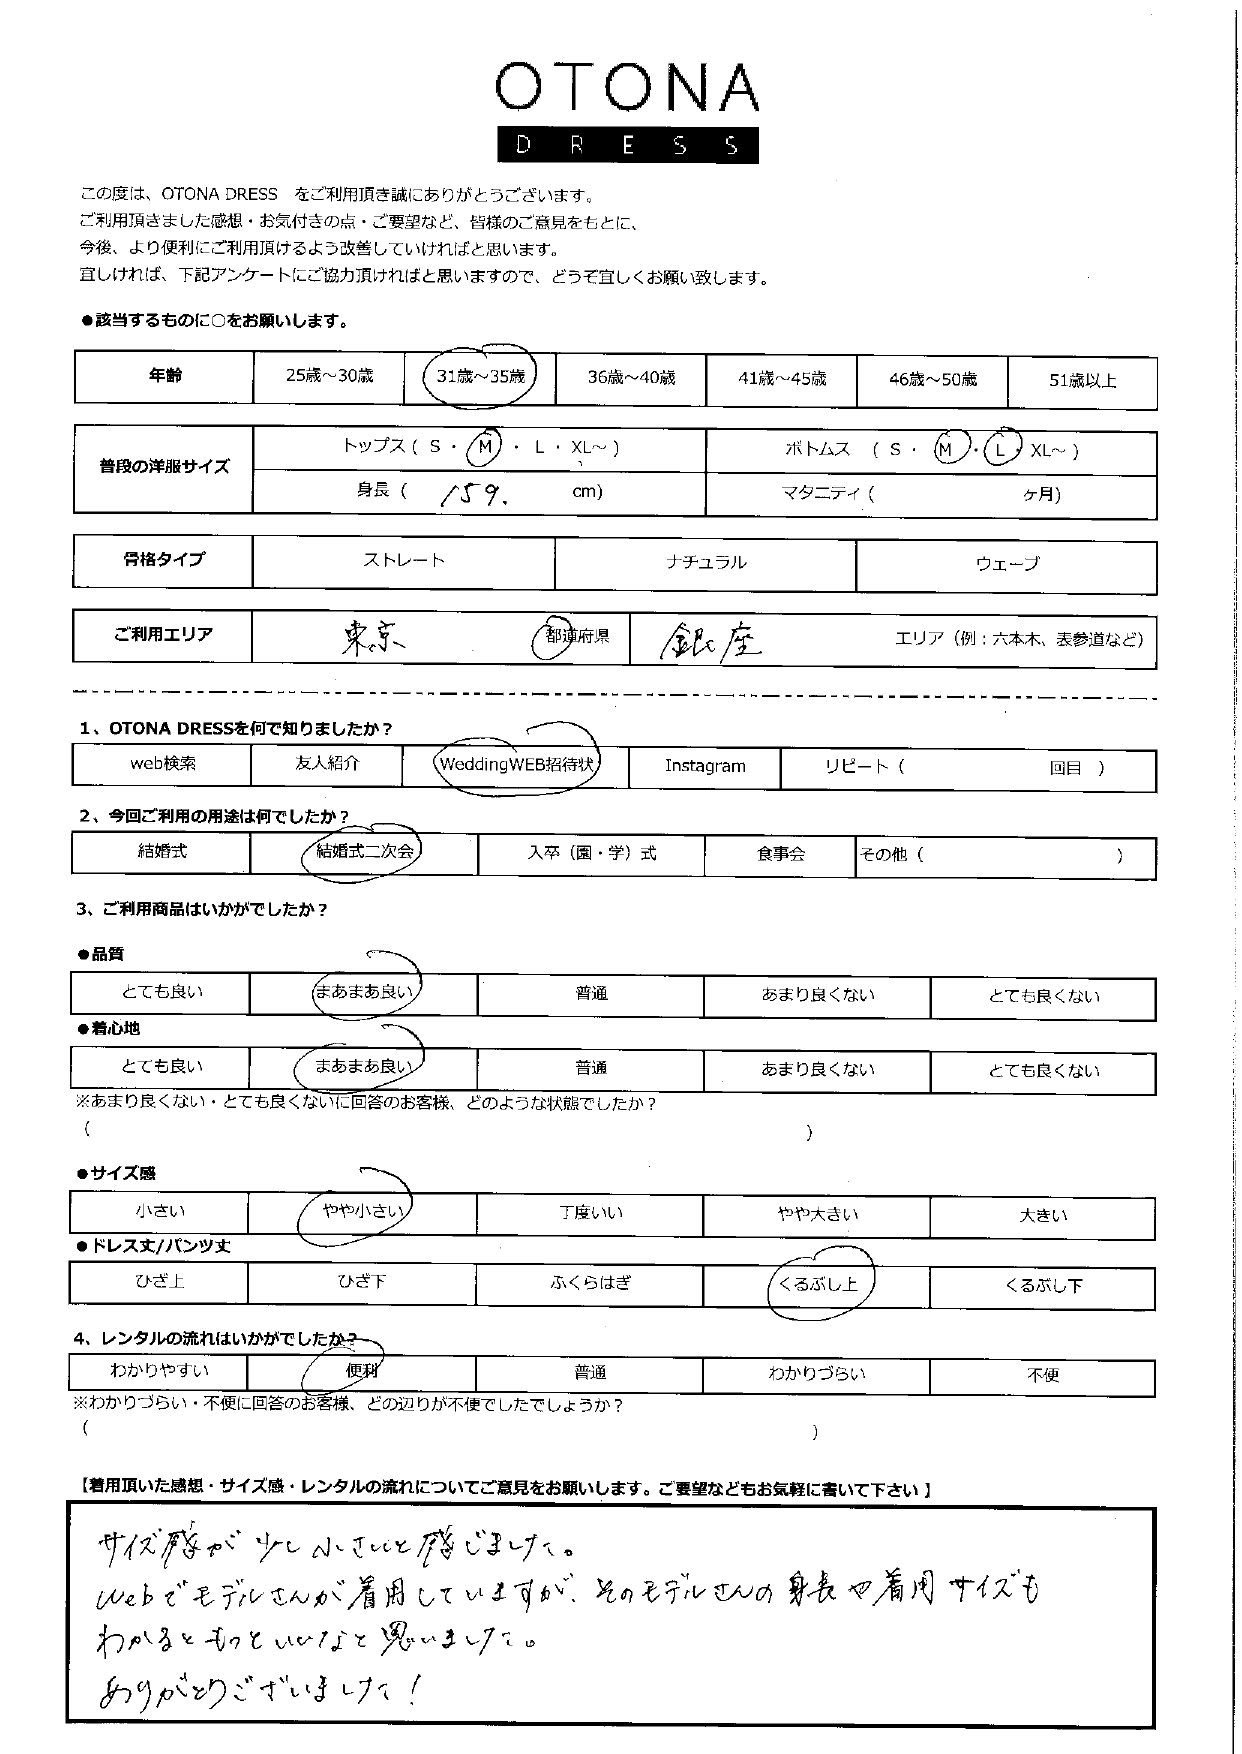 OTONA
DRESS
この度は、OTONA DRESS をご利用頂き誠にありがとうございます。
ご利用頂きました感想・お気付きの点・ご要望など、皆様のご意見をもとに、
今後、より便利にご利用頂けるよう改善していければと思います。
宜しければ、下記アンケートにご協力頂ければと思いますので、どうぞ宜しくお願い致します。
●該当するものに○をお願いします。
年齢 25歳～30歳 31歳～35歳 36歳～40歳 41歳～45歳 46歳～50歳 51歳以上
普段の洋服サイズ トップス ( S ・ M ・ L ・ XL～ ) ボトムス ( S ・ M ・ L ・ XL～ )
身長 ( 159. cm) マタニティ ( ヶ月)
骨格タイプ ストレート ナチュラル ウェーブ
ご利用エリア 東京 都道府県 銀座 エリア（例：六本木、表参道など）
1、OTONA DRESSを何で知りましたか？
web検索 友人紹介 WeddingWEB招待状 Instagram リピート ( 回目 )
2、今回ご利用の用途は何でしたか？
結婚式 結婚式二次会 入卒（園・学）式 食事会 その他 ( )
3、ご利用商品はいかがでしたか？
●品質
とても良い まあまあ良い 普通 あまり良くない とても良くない
●着心地
とても良い まあまあ良い 普通 あまり良くない とても良くない
※あまり良くない・とても良くないに回答のお客様、どのような状態でしたか？
( )
●サイズ感
小さい やや小さい 丁度いい やや大きい 大きい
●ドレス丈/パンツ丈
ひざ上 ひざ下 ふくらはぎ くるぶし上 くるぶし下
4、レンタルの流れはいかがでしたか？
わかりやすい 便利 普通 わかりづらい 不便
※わかりづらい・不便に回答のお客様、どの辺りが不便でしたでしょうか？
( )
【着用頂いた感想・サイズ感・レンタルの流れについてご意見をお願いします。ご要望などもお気軽に書いて下さい 】
サイズ感が少し小さいと感じました。
Webでモデルさんが着用していますが、そのモデルさんの身長や着用サイズも
わかるともっといいなと思いました。
ありがとうございました！